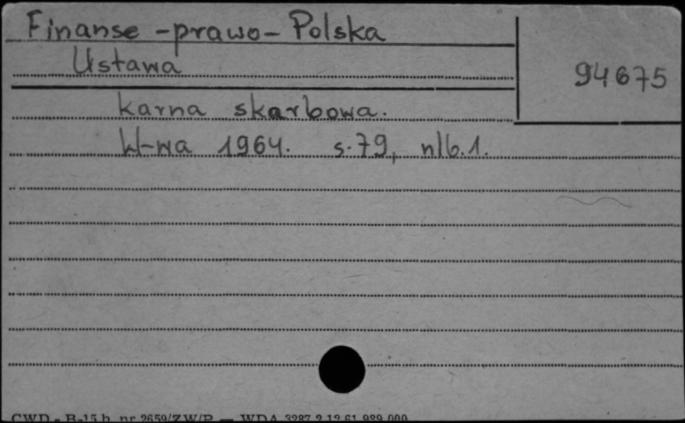 Finanse - prawo - Polska
Ustawa
94675
karna skarbowa.
W-wa 1964. s. 79, nlb. 1.
CWD - B-15 b. nr 2659/ZW/P — WDA 3287 2.12.61 989.000